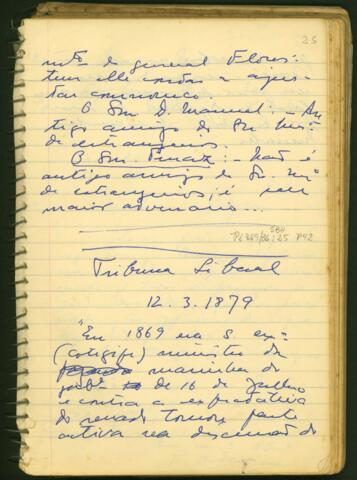 25
mto de general Flores:
tem elle contas a ajus-
tar comnosco.
O Snr. D. Manuel: — An-
tigo amigo do Sr. Mi-
de estrangeiros.
O Snr. Ferraz: — Não é
antigo amigo do Sr. Mº
de estrangeiros, é seu
maior adversario...
Tribuna Liberal
12.3.1879
"Em 1869 era S. exª
(Cotegipe) ministro da
marinha do
gabº de 16 de Julho
e contra a expectativa
do senado tomou parte
activa na discussão do